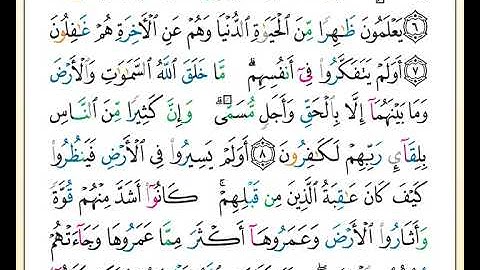 ۝٦ يَعْلَمُونَ ظَٰهِرًا مِّنَ الْحَيَوٰةِ الدُّنْيَا وَهُمْ عَنِ الْأَخِرَةِ هُمْ غَٰفِلُونَ
۝٧ أَوَلَمْ يَتَفَكَّرُوا۟ فِىٓ أَنفُسِهِم ۗ مَّا خَلَقَ اللَّهُ السَّمَٰوَٰتِ وَالْأَرْضَ
وَمَا بَيْنَهُمَآ إِلَّا بِالْحَقِّ وَأَجَلٍ مُّسَمًّى ۗ وَإِنَّ كَثِيرًا مِّنَ النَّاسِ
بِلِقَآئِ رَبِّهِمْ لَكَٰفِرُونَ ۝٨ أَوَلَمْ يَسِيرُوا۟ فِى الْأَرْضِ فَيَنظُرُوا۟
كَيْفَ كَانَ عَٰقِبَةُ الَّذِينَ مِن قَبْلِهِمْ ۚ كَانُوٓا۟ أَشَدَّ مِنْهُمْ قُوَّةً
وَأَثَارُوا۟ الْأَرْضَ وَعَمَرُوهَآ أَكْثَرَ مِمَّا عَمَرُوهَا وَجَآءَتْهُمْ